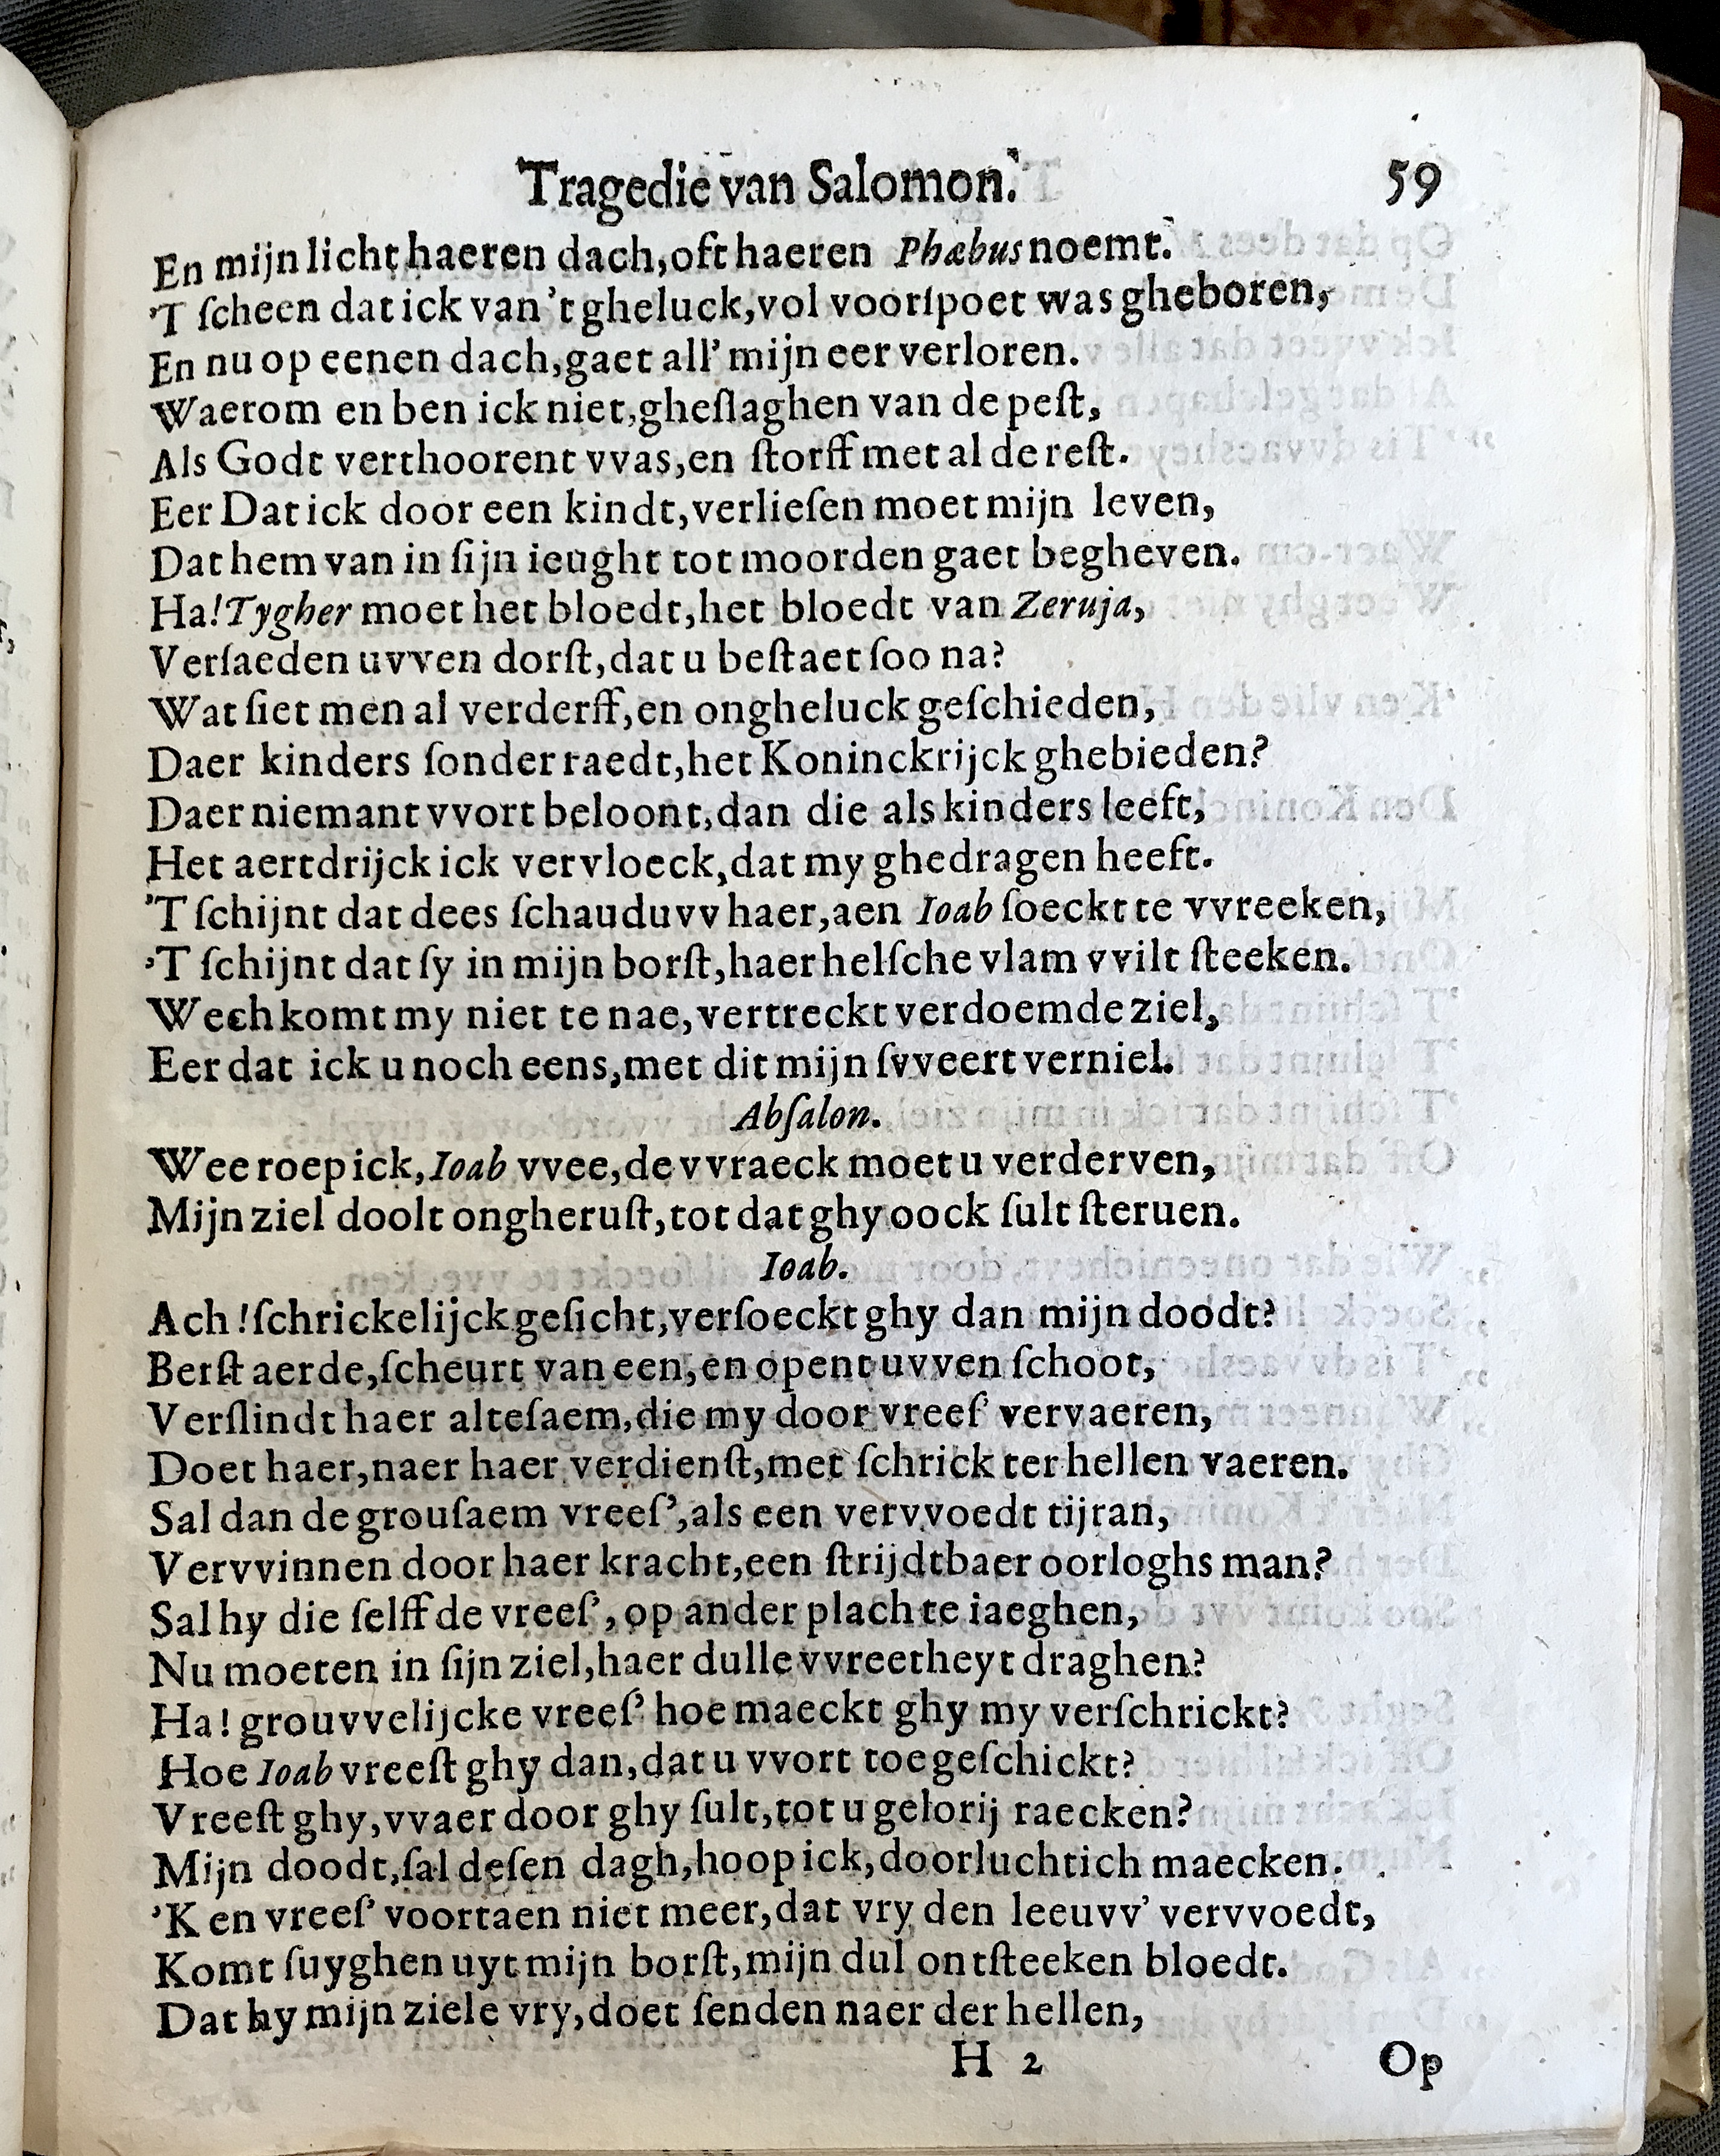 Tragedie van Salomon. 59
En mijn licht haeren dach, oft haeren Phœbus noemt.
'T ſcheen dat ick van 't gheluck, vol voorſpoet was gheboren,
En nu op eenen dach, gaet all' mijn eer verloren.
Waerom en ben ick niet, gheſlaghen van de peſt,
Als Godt verthoorent vvas, en ſtorff met al de reſt.
Eer Dat ick door een kindt, verlieſen moet mijn leven,
Dat hem van in ſijn ieught tot moorden gaet begheven.
Ha! Tygher moet het bloedt, het bloedt van Zeruja,
Verſaeden uvven dorſt, dat u beſtaet ſoo na?
Wat ſiet men al verderff, en ongheluck geſchieden,
Daer kinders ſonder raedt, het Koninckrijck ghebieden?
Daer niemant vvort beloont, dan die als kinders leeft,
Het aertdrijck ick vervloeck, dat my ghedragen heeft.
'T ſchijnt dat dees ſchauduvv haer, aen Ioab ſoeckt te vvreeken,
'T ſchijnt dat ſy in mijn borſt, haer helſche vlam vvilt ſteeken.
Wech komt my niet te nae, vertreckt verdoemde ziel,
Eer dat ick u noch eens, met dit mijn ſvveert verniel.
Abſalon.
Wee roep ick, Ioab vvee, de vvraeck moet u verderven,
Mijn ziel doolt ongheruſt, tot dat ghy oock ſult ſteruen.
Ioab.
Ach! ſchrickelijck geſicht, verſoeckt ghy dan mijn doodt?
Berſt aerde, ſcheurt van een, en opent uvven ſchoot,
Verſlindt haer alteſaem, die my door vreeſ' vervaeren,
Doet haer, naer haer verdienſt, met ſchrick ter hellen vaeren.
Sal dan de grouſaem vreeſ', als een vervvoedt tijran,
Vervvinnen door haer kracht, een ſtrijdtbaer oorloghs man?
Sal hy die ſelff de vreeſ', op ander plach te iaeghen,
Nu moeten in ſijn ziel, haer dulle vvreetheyt draghen?
Ha! grouvvelijcke vreeſ' hoe maeckt ghy my verſchrickt?
Hoe Ioab vreeſt ghy dan, dat u vvort toegeſchickt?
Vreeſt ghy, vvaer door ghy ſult, tot u gelorij raecken?
Mijn doodt, ſal deſen dagh, hoop ick, doorluchtich maecken.
'K en vreeſ' voortaen niet meer, dat vry den leeuvv' vervvoedt,
Komt ſuyghen uyt mijn borſt, mijn dul ontſteeken bloedt.
Dat hy mijn ziele vry, doet ſenden naer der hellen,
H 2 Op